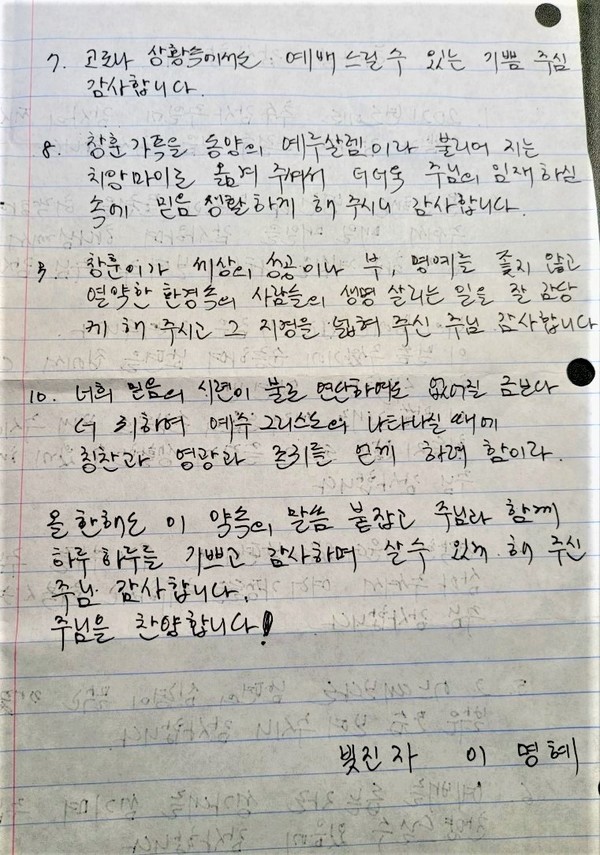 7. 고로나 상황속에서도 예배드릴수 있는 기쁨 주심
감사합니다.
8. 창훈가족을 동양의 예루살렘이라 불리어 지는
치앙마이로 옮겨 주셔서 더더욱 주님의 임재하심
속에 믿음 생활하게 해 주시니 감사합니다.
9. 창훈이가 세상의 성공이나 부, 명예를 좇지 않고
열악한 환경속의 사람들의 생명 살리는 일을 잘 감당
케 해 주시고 그 지경을 넓혀 주신 주님 감사합니다
10. 너희 믿음의 시련이 불로 연단하여도 없어질 금보다
더 귀하여 예수 그리스도의 나타나실 때에
칭찬과 영광과 존귀를 얻게 하려 함이라.
올 한해도 이 약속의 말씀 붙잡고 주님과 함께
하루하루를 기쁘고 감사하며 살수 있게 해 주신
주님 감사합니다.
주님을 찬양합니다!
빚진자 이 명혜